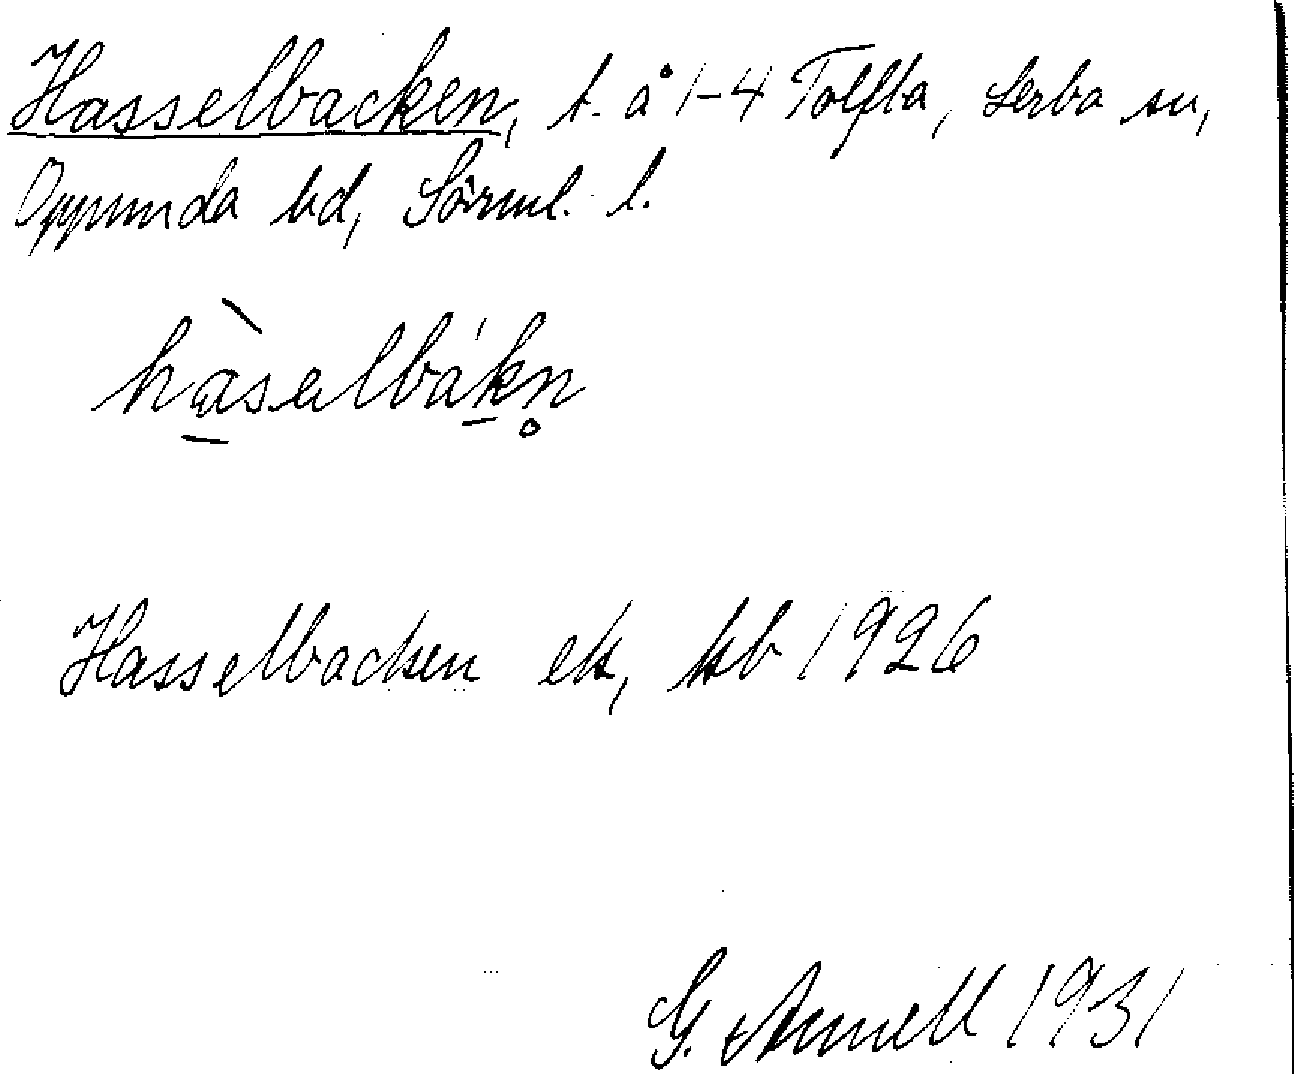 Hasselbacken, t. å 1-4 Tolfta, Lerbo sn,
Oppunda hd, Sörml. l.
hàsəlbákn̥
Hasselbacken ek, kb 1926
G. Arnell 1931